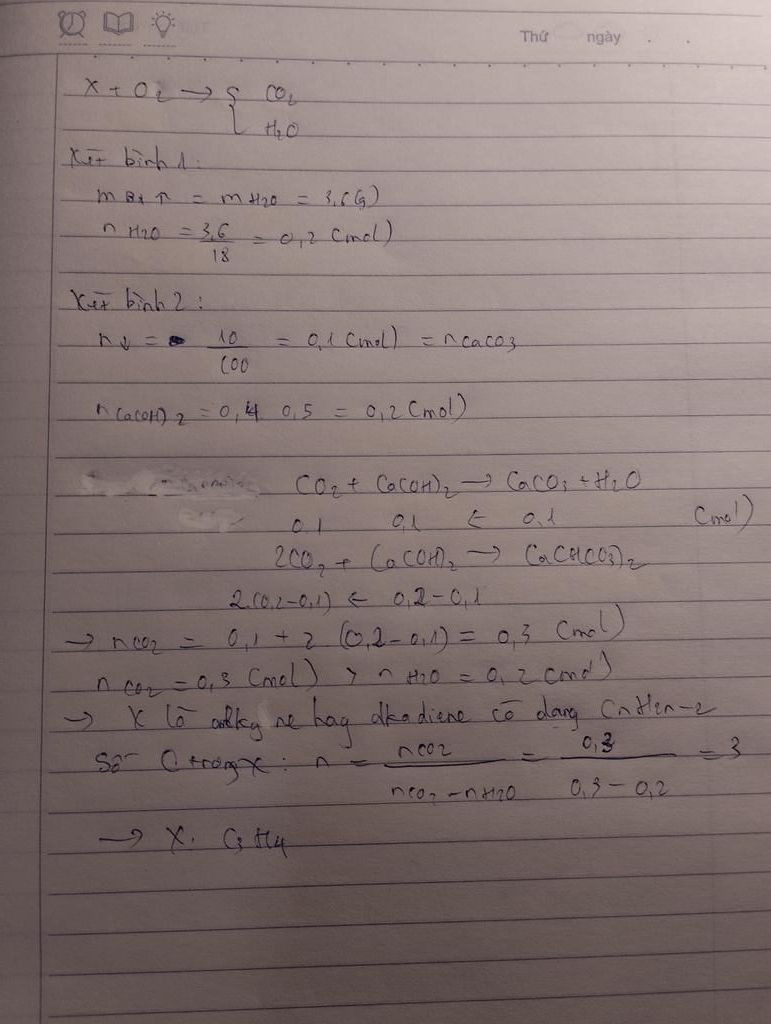 Thứ ngày . .
X + O2 → { CO2
H2O
Xét bình 1:
m Bt ↑ = m H2O = 3,6 (g)
n H2O = 3,6/18 = 0,2 (mol)
Xét bình 2:
n↓ = 10/100 = 0,1 (mol) = n CaCO3
n Ca(OH)2 = 0,4 0,5 = 0,2 (mol)
CO2 + Ca(OH)2 → CaCO3 + H2O
0,1 0,1 ← 0,1 (mol)
2CO2 + Ca(OH)2 → Ca(HCO3)2
2.(0,2-0,1) ← 0,2-0,1
→ nCO2 = 0,1 + 2 (0,2-0,1) = 0,3 (mol)
n CO2 = 0,3 (mol) > n H2O = 0,2 (mol)
→ X là alkyne hay alkadiene có dạng CnH2n-2
Số C trong X: n = nCO2/(nCO2 - nH2O) = 0,3/(0,3 - 0,2) = 3
→ X: C3H4